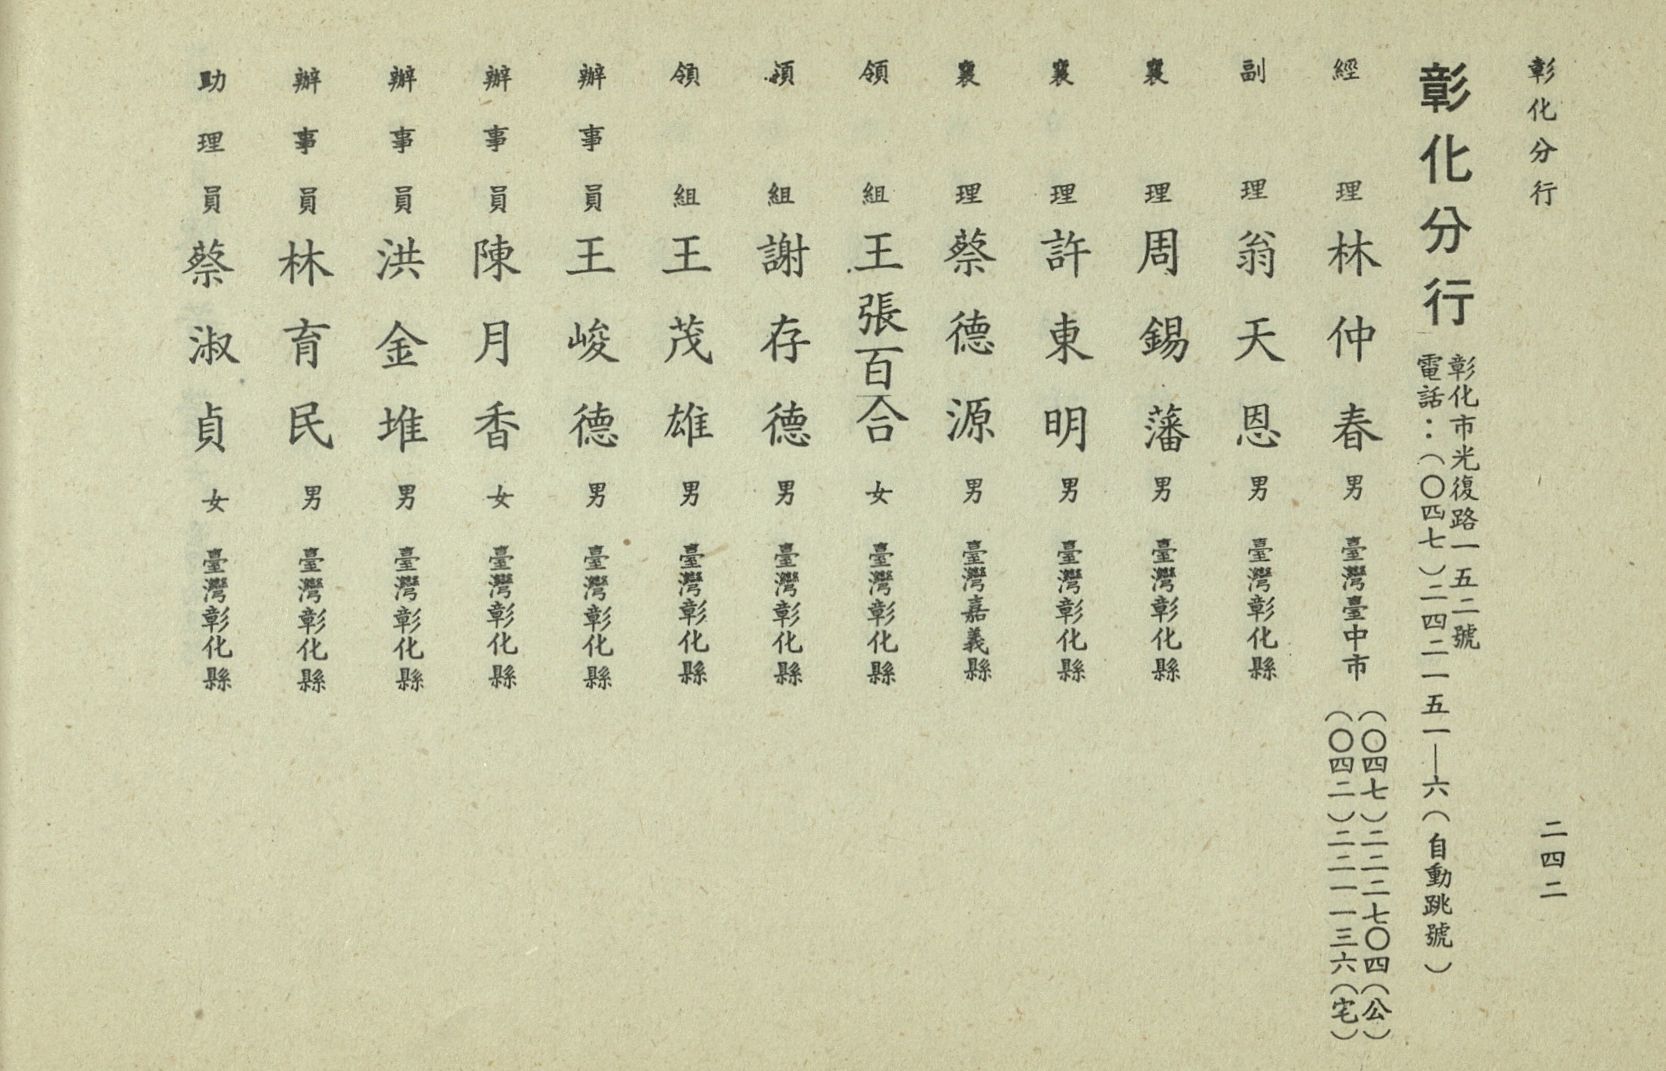 彰化分行
二四二
彰化分行
彰化市光復路一五二號
電話：（〇四七）二四二一五一—六（自動跳號）
經理 林仲春 男 臺灣臺中市
（〇四七）二二二七〇四（公）
（〇四二）二二一一三六（宅）
副理 翁天恩 男 臺灣彰化縣
襄理 周錫藩 男 臺灣彰化縣
襄理 許東明 男 臺灣彰化縣
襄理 蔡德源 男 臺灣嘉義縣
領組 王張百合 女 臺灣彰化縣
領組 謝存德 男 臺灣彰化縣
領組 王茂雄 男 臺灣彰化縣
辦事員 王峻德 男 臺灣彰化縣
辦事員 陳月香 女 臺灣彰化縣
辦事員 洪金堆 男 臺灣彰化縣
辦事員 林育民 男 臺灣彰化縣
助理員 蔡淑貞 女 臺灣彰化縣